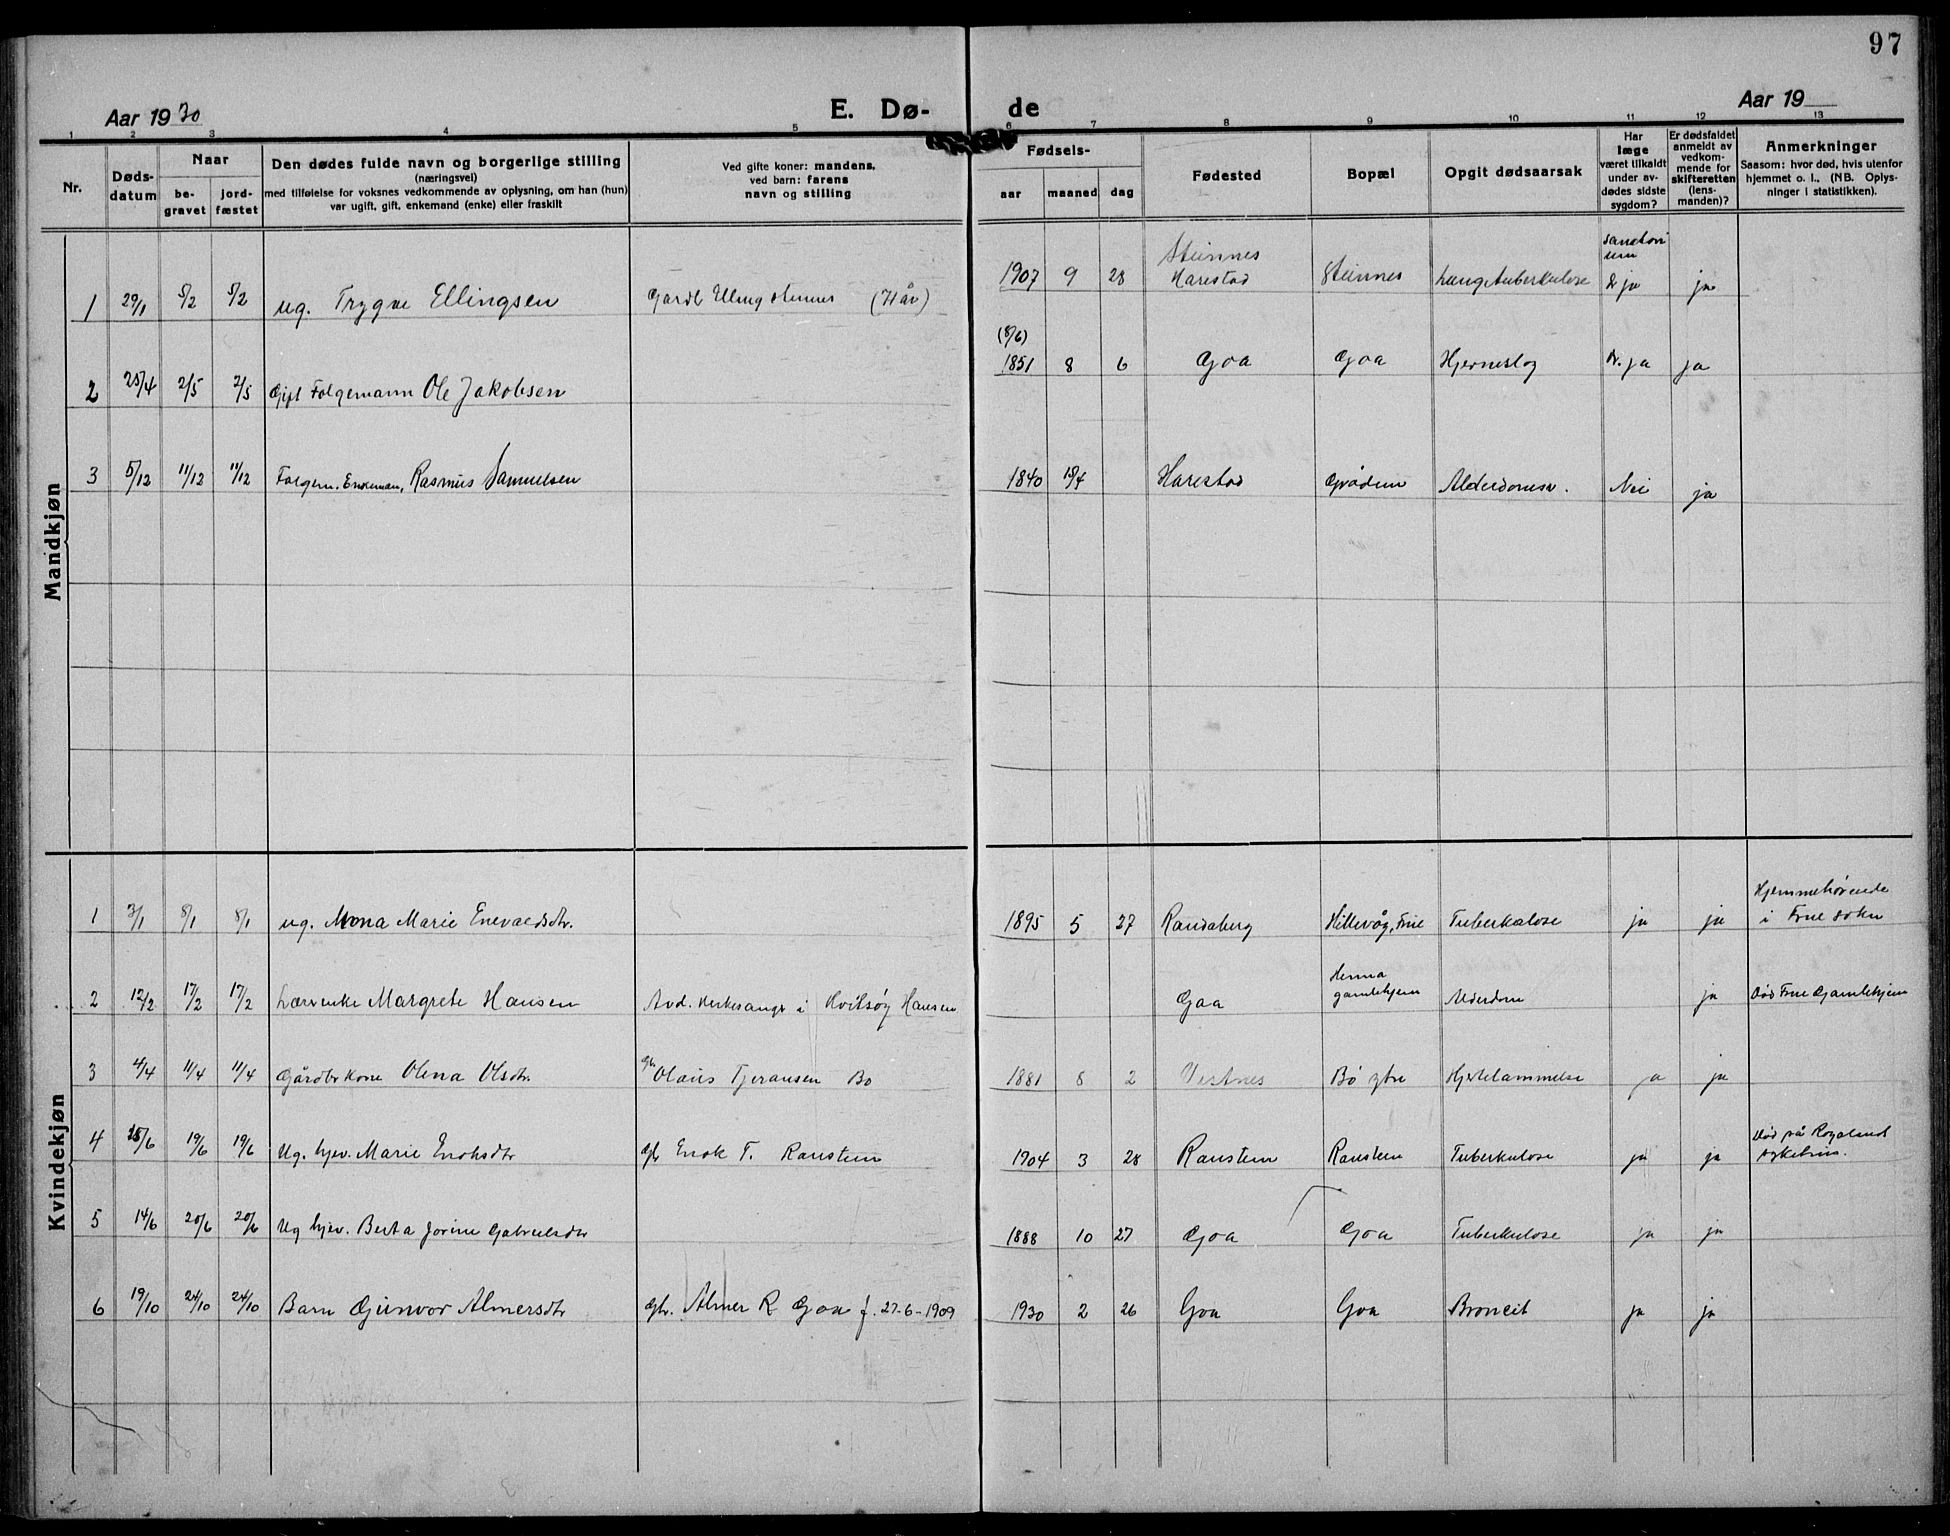 97
Aar 1930 E. Dø- de Aar 19
1 2 3 4 5 6 7 8 9 10 11 12 13
Nr.
Døds-
datum
Naar
be-
gravet
jord-
fæstet
Den dødes fulde navn og borgerlige stilling
(næringsvei)
med tilføielse for voksnes vedkommende av oplysning, om han (hun)
var ugift, gift, enkemand (enke) eller fraskilt
Ved gifte koner: mandens,
ved barn: farens
navn og stilling
Fødsels-
aar maaned dag
Fødested
Bopæl
Opgit dødsaarsak
Har
læge
været tilkaldt
under av-
dødes sidste
sygdom?
Er dødsfaldet
anmeldt av
vedkom-
mende for
skifteretten
(lens-
manden)?
Anmerkninger
Saasom: hvor død, hvis utenfor
hjemmet o. l., (NB. Oplys-
ninger i statistikken).
Mandkjøn
1 29/1 5/2 5/2 ug. Trygve Ellingsen Gardb Elling (Håv) 1907 9 28 Steinnes
Harestad Steinnes Lungetuberkulose ja ja
2 25/4 2/5 2/5 Gift Folgemann Ole Jakobsen (8/6)
1851 8 6 Goa Goa Hjerneslag Dr. ja ja
3 5/12 11/12 11/12 Folgem. Enkeman, Rasmus Samuelsen 1840 18/4 Harestad Grødem Alderdomsv. Nei ja
Kvindekjøn
1 3/1 8/1 8/1 ug. Mona Marie Enevaldsdtr. 1895 5 27 Randaberg Hillevåg, Frue Tuberkulose ja ja Hjemmehørende
i Frue sokn
2 12/2 17/2 17/2 Lærerenke Margrete Hansen Avd. kirkesanger i Kvitsøy Hansen Goa gamlehjem Alderdom ja Død Frue Gamlehjem
3 4/4 11/4 11/4 Gårdbr kone Olena Olsdtr. Gbr Olaus Tjeransen Bø 1881 8 2 Vistnes Bø ytre Hjertelammelse ja ja
4 15/6 19/6 19/6 Ug. hjev. Marie Enoksdtr gbr Enok T. Ranstein 1904 3 28 Ranstein Ranstein Tuberkulose ja ja Død på Rogaland
sykehus.
5 14/6 20/6 20/6 Ug hjev. Berta Jorine Gabrielsdtr 1888 10 27 Goa Goa Tuberkulose ja ja
6 19/10 24/10 24/10 Barn Gunvor Almersdtr gbr. Almer R Goa f. 27-6-1909 1930 2 26 Goa Goa Broncit ja ja